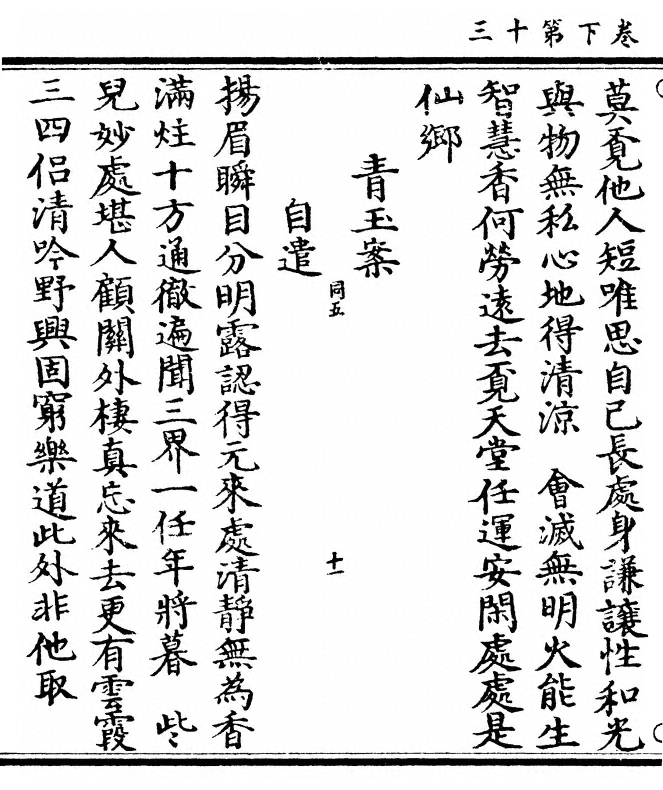 卷下第十三
莫覔他人短唯思自己長處身謙讓性和光
與物無私心地得清涼　會滅無明火能生
智慧香何勞遠去覔天堂任運安閑處處是
仙鄉
青玉案
同五　十一
自遣
揚眉瞬目分明露認得元來處清靜無為香
滿炷十方通徹遍聞三界一任年將暮　些
兒妙處堪人顧關外棲真忘來去更有雲霞
三四侶清吟野興固窮樂道此外非他取